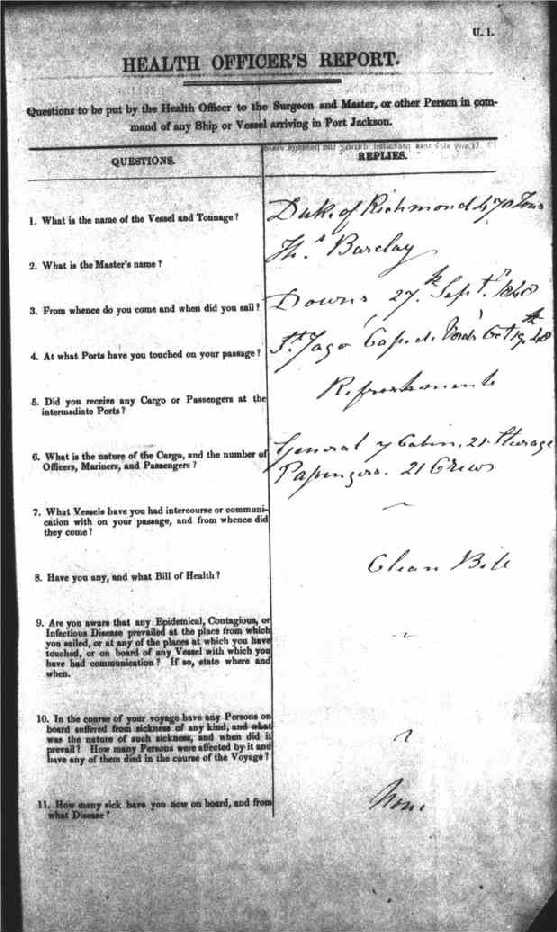 U. 1.
HEALTH OFFICER'S REPORT.
Questions to be put by the Health Officer to the Surgeon and Master, or other Person in com-
mand of any Ship or Vessel arriving in Port Jackson.
QUESTIONS.
REPLIES.
1. What is the name of the Vessel and Tonnage?
Duke of Richmond 470 Tons
2. What is the Master's name?
Thos Barclay
3. From whence do you come and when did you sail?
Downs 27th Sept. 1840
4. At what Ports have you touched on your passage?
St Jago Cape de Verds Oct 19th 40
5. Did you receive any Cargo or Passengers at the
intermediate Ports?
Refreshments
6. What is the nature of the Cargo, and the number of
Officers, Mariners, and Passengers?
General 7 Cabin, 21 Steerage
Passengers. 21 Crew
7. What Vessels have you had intercourse or communi-
cation with on your passage, and from whence did
they come?
8. Have you any, and what Bill of Health?
Clean Bill
9. Are you aware that any Epidemical, Contagious, or
Infectious Disease prevailed at the place from which
you sailed, or at any of the places at which you have
touched, or on board of any Vessel with which you
have had communication? If so, state where and
when.
10. In the course of your voyage have any Persons on
board suffered from sickness of any kind, and what
was the nature of such sickness, and when did it
prevail? How many Persons were affected by it and
have any of them died in the course of the Voyage?
11. How many sick have you now on board, and from
what Disease?
None